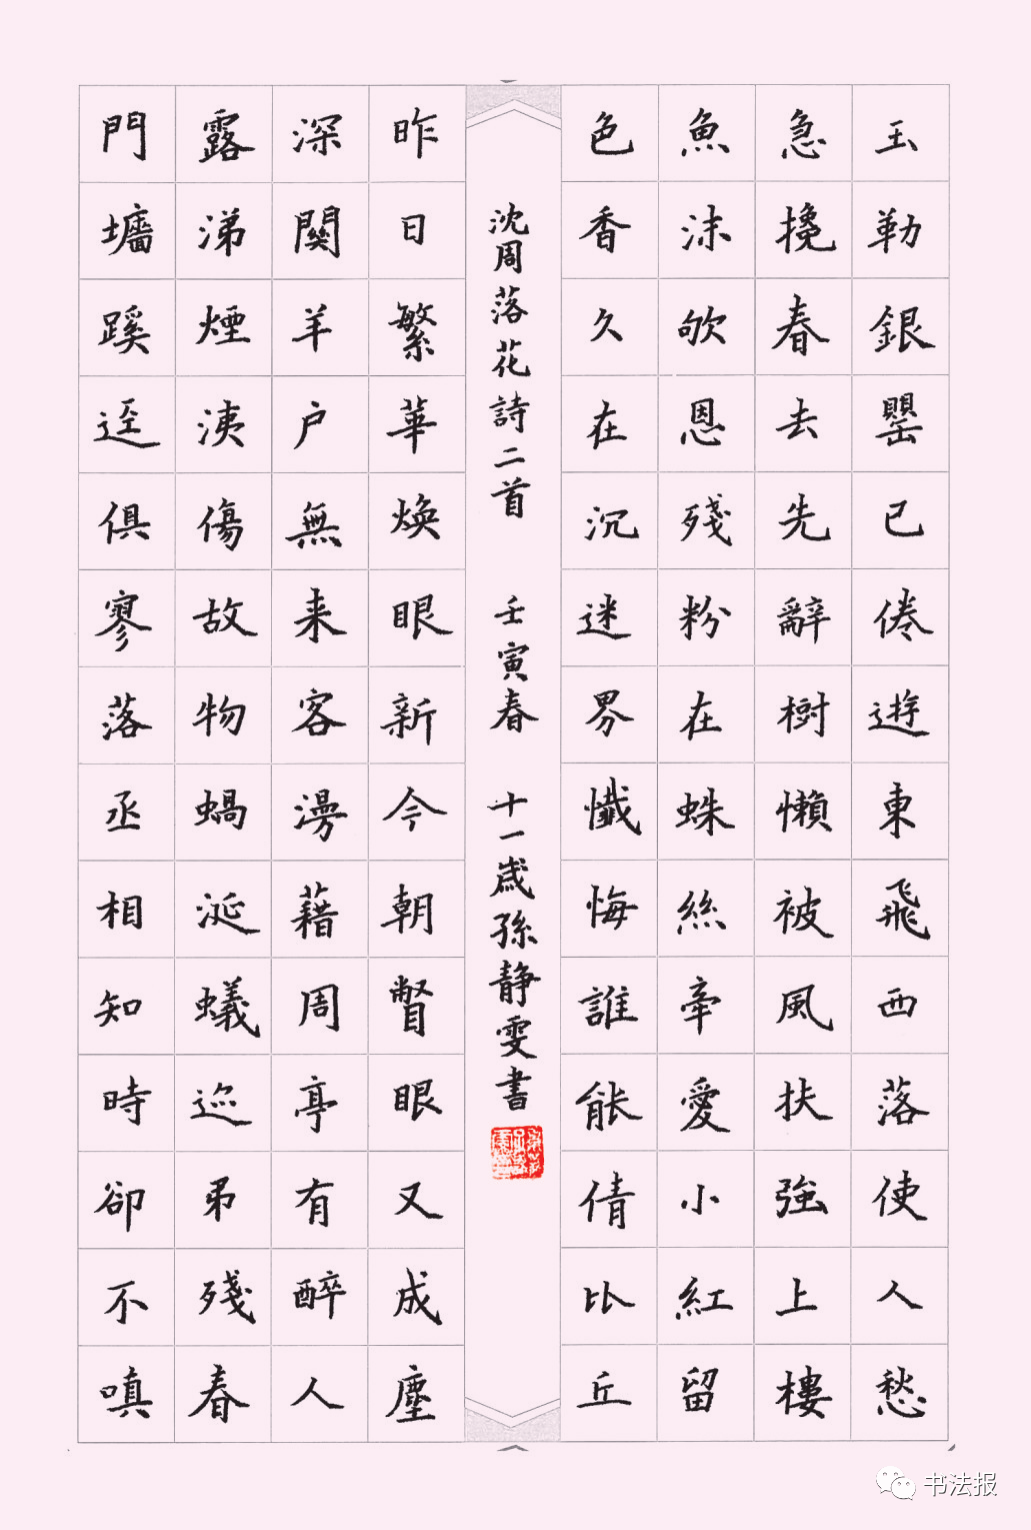 玉勒銀罌已倦遊東飛西落使人愁
急攙春去先辭樹懶被風扶強上樓
魚沫欨恩殘粉在蛛絲牽愛小紅留
色香久在沉迷界懺悔誰能倩比丘
沈周落花詩二首 壬寅春 十一歲孫静雯書
昨日繁華煥眼新今朝瞥眼又成塵
深關羊户無来客漫藉周亭有醉人
露涕煙洟傷故物蝸涎蟻迹弔殘春
門墻蹊逕俱寥落丞相知時卻不嗔
书法报